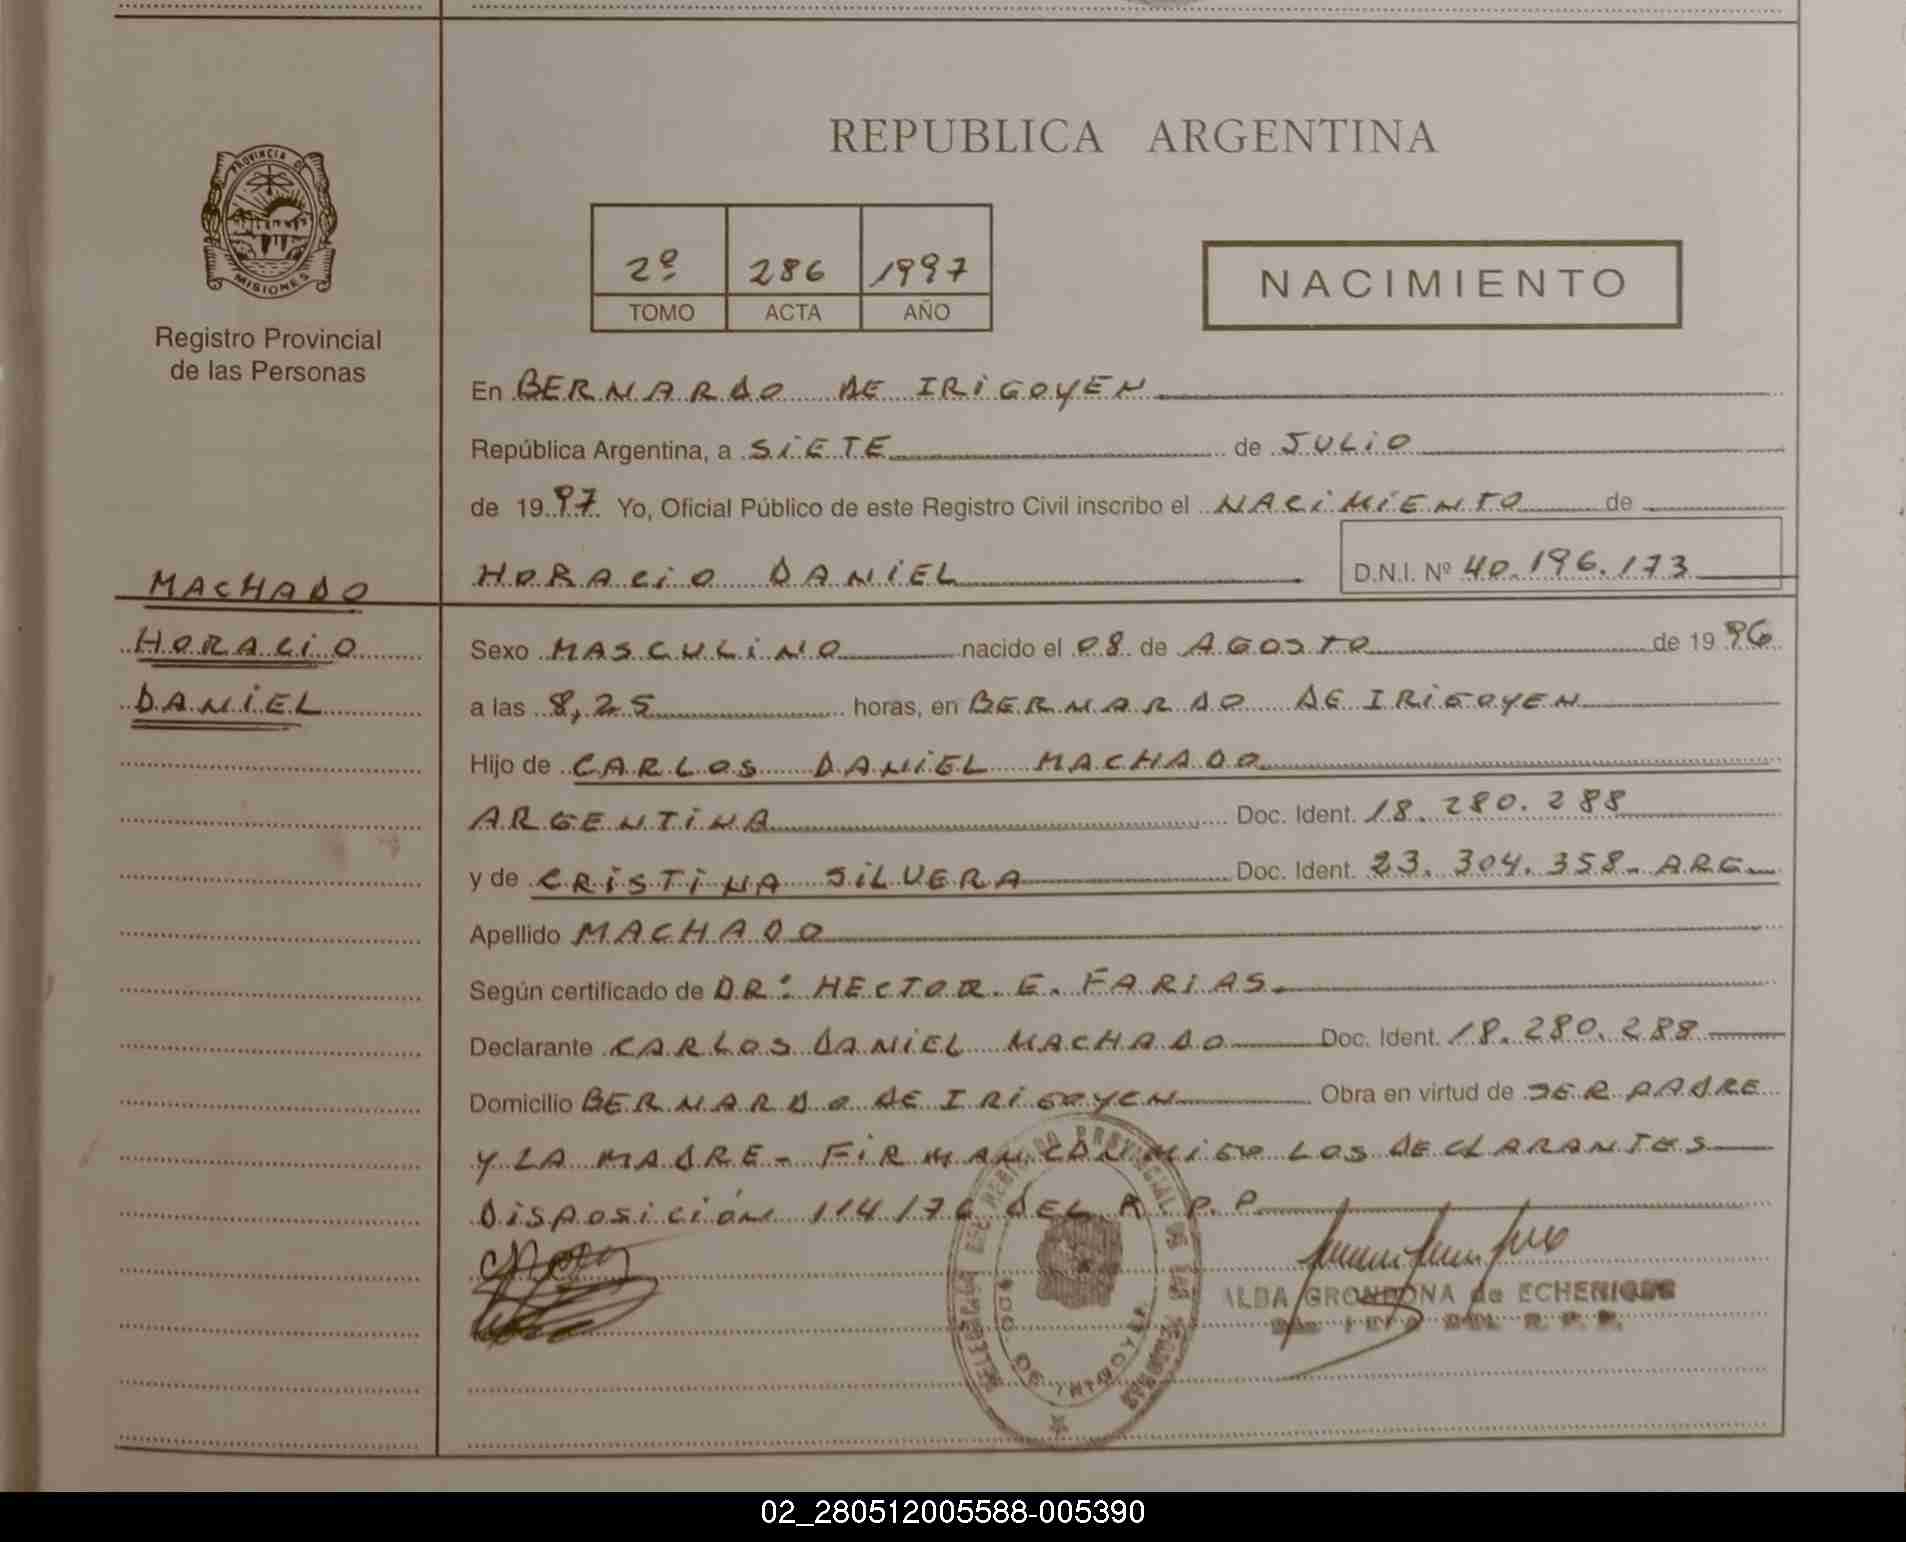 REPUBLICA ARGENTINA
PROVINCIA DE
MISIONES
Registro Provincial
de las Personas
2º 286 1997
TOMO ACTA AÑO
NACIMIENTO
En BERNARDO DE IRIGOYEN
República Argentina, a SIETE de JULIO
de 1997 Yo, Oficial Público de este Registro Civil inscribo el NACIMIENTO de
HORACIO DANIEL D.N.I. Nº 40.196.173
MACHADO
HORACIO
DANIEL
Sexo MASCULINO nacido el 08 de AGOSTO de 1996
a las 8,25 horas, en BERNARDO DE IRIGOYEN
Hijo de CARLOS DANIEL MACHADO
ARGENTINA Doc. Ident. 18.280.288
y de CRISTINA SILVERA Doc. Ident. 23.304.358-ARG
Apellido MACHADO
Según certificado de DR: HECTOR E. FARIAS
Declarante CARLOS DANIEL MACHADO Doc. Ident. 18.280.288
Domicilio BERNARDO DE IRIGOYEN Obra en virtud de SER PADRE
Y LA MADRE - FIRMAN CONMIGO LOS DECLARANTES
DISPOSICIÓN 114/76 DEL R.P.P.
ALBA GRONDONA de ECHENIQUE
DEL R. P. P.
02_280512005588-005390